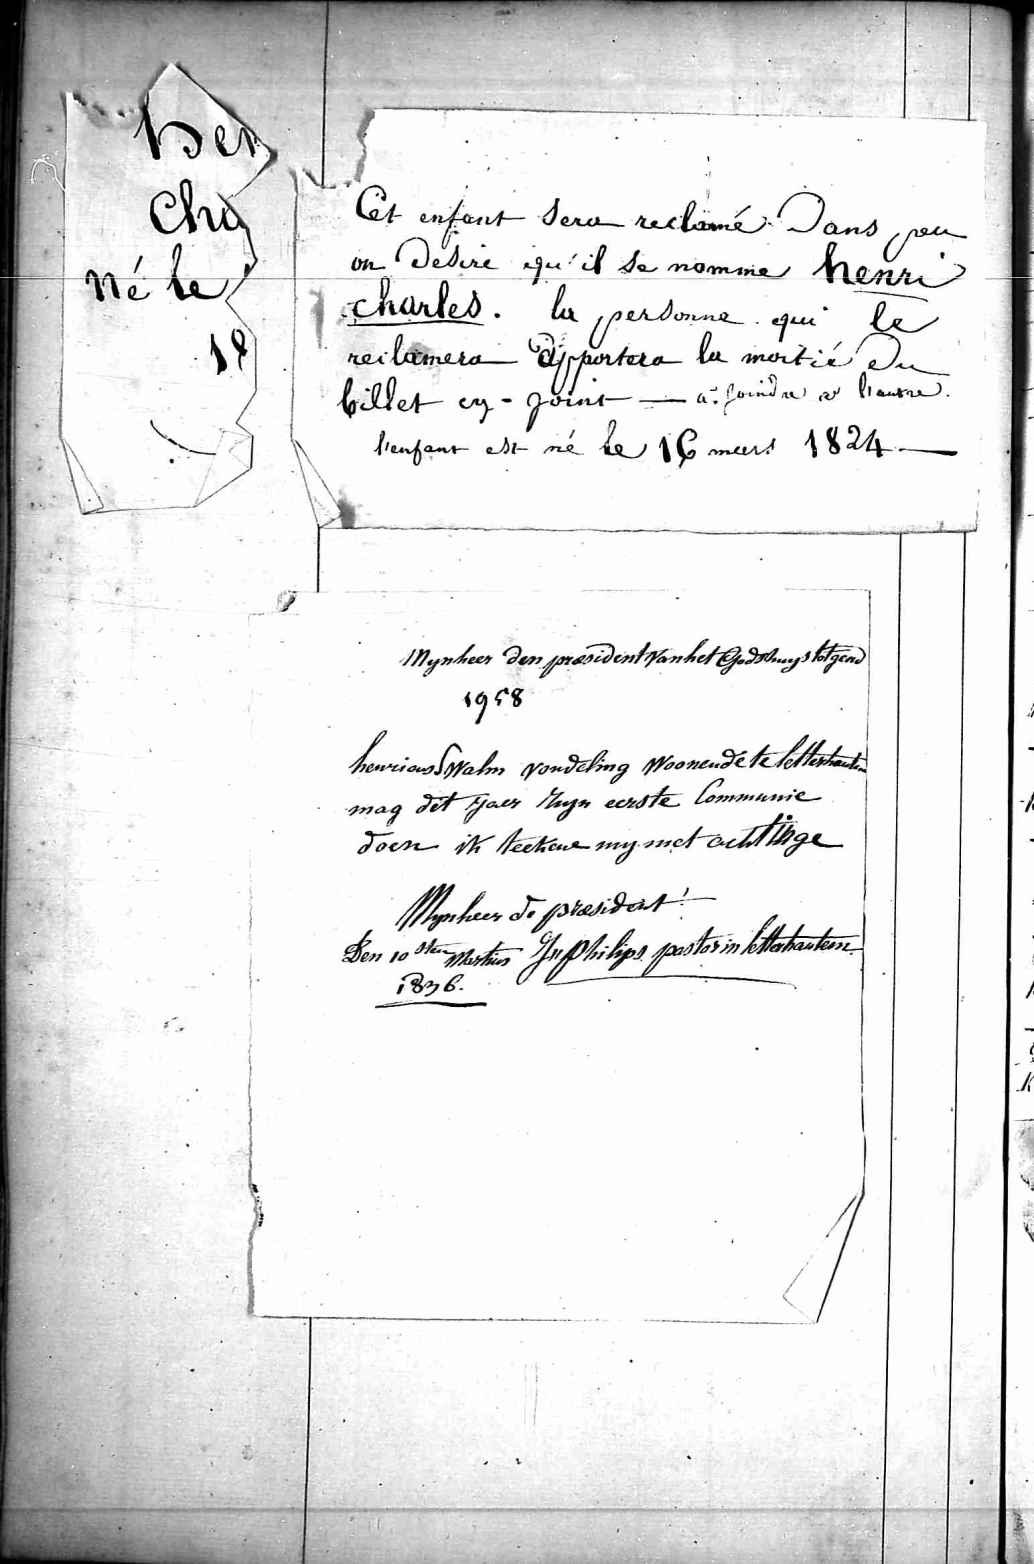 hen
cha
né le
18
Cet enfant sera reclamé Dans peu
on Desire qu'il se nomme henri
charles. la personne qui le
reclamera apportera la moitié Du
billet cy-joint — a joindre a l'autre.
l'enfant est né le 16 mars 1824 —
Mynheer den præsident van het Godshuys tot gend
1958
henricus Swalm vondeling woonende te letterhautem
mag dit jaer zyn eerste Communie
doen ik teekene my met achtinge
Mynheer de præsident!
Den 10 sten Martius philips pastor in letterhautem
1836.